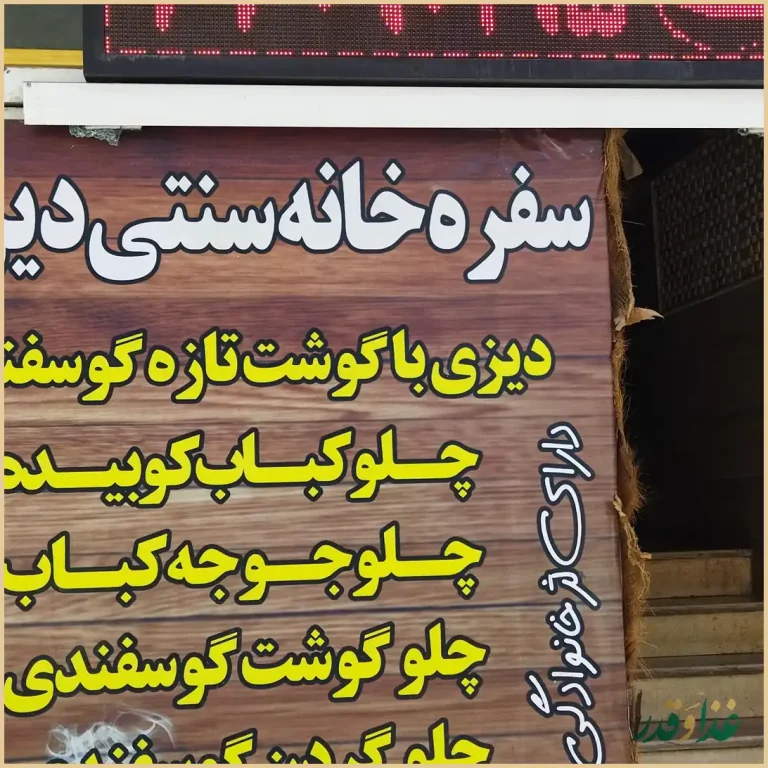 سفره خانه سنتی
دیزی با گوشت تازه
چلو کباب کوبیده
چلو جوجه کباب
چلو گوشت گوسفندی
چلو گردن گوسفندی
دارای لژ خانوادگی
غذا و قدرا